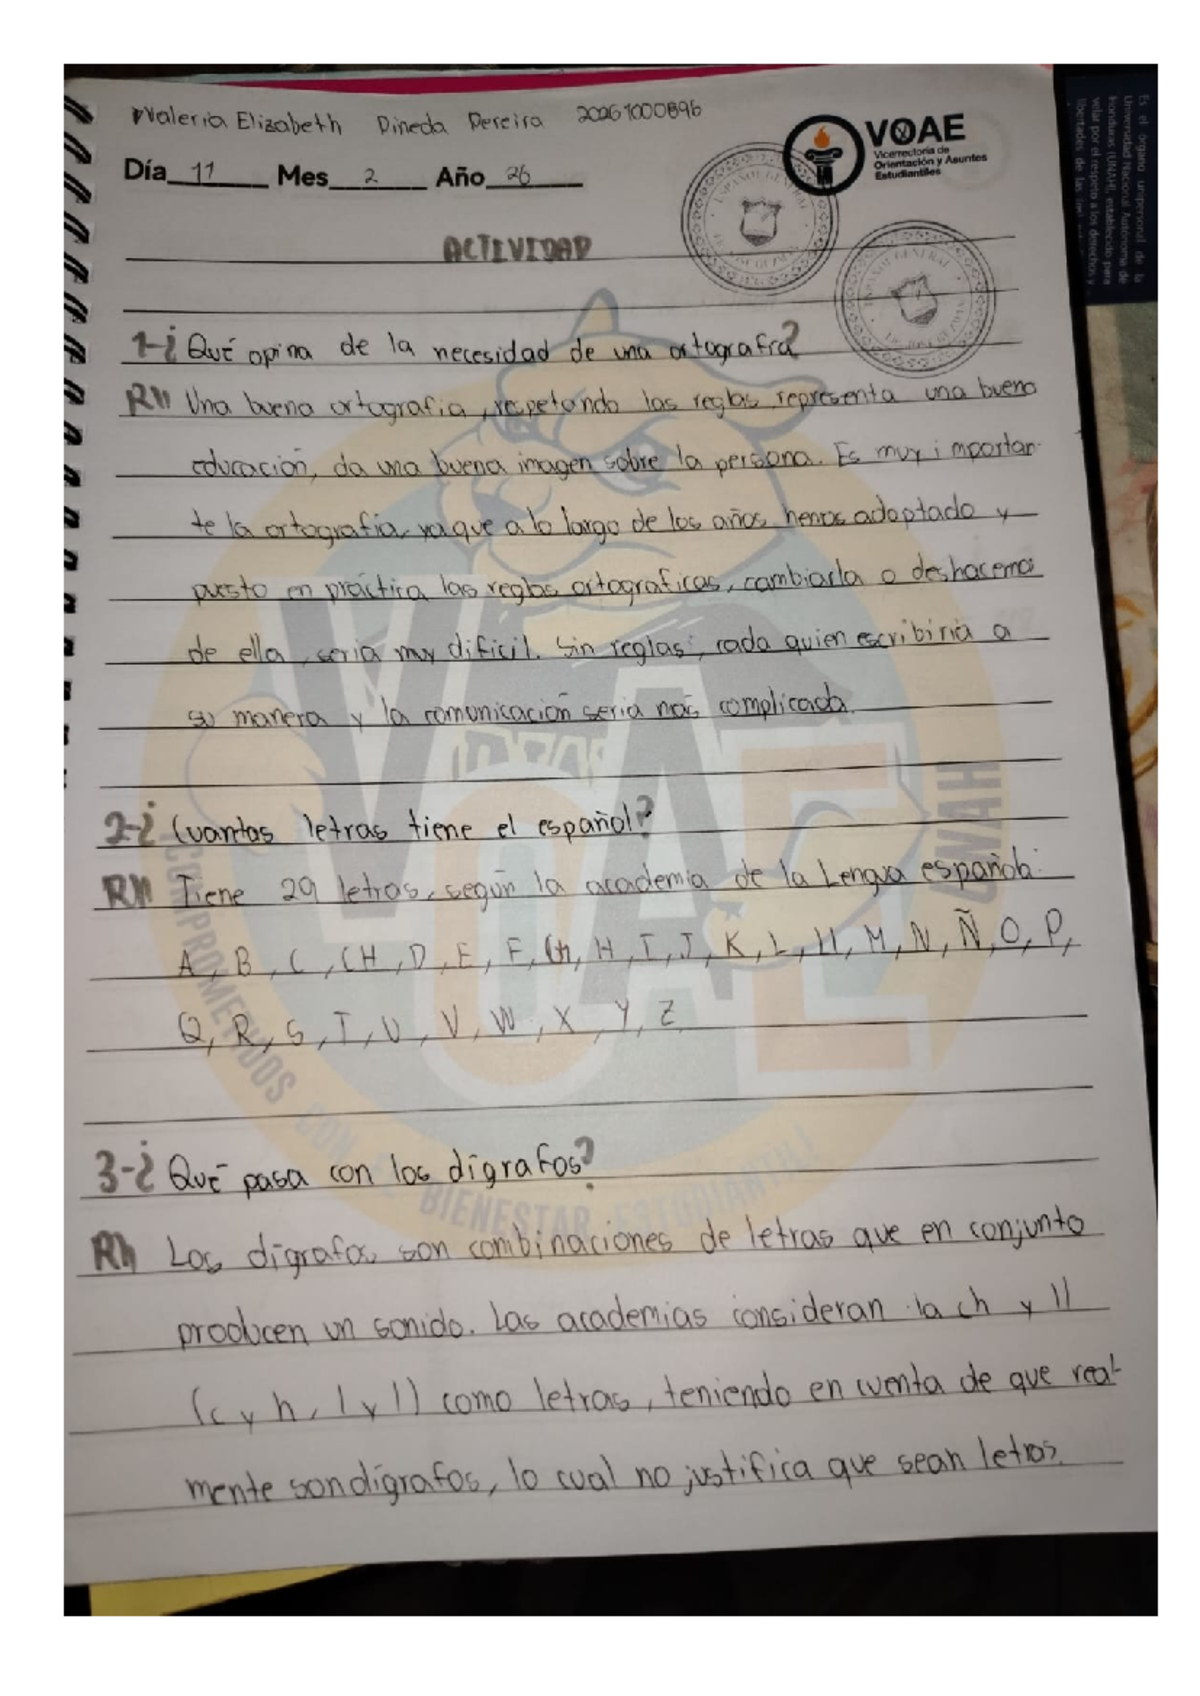 Valeria Elizabeth Pineda Pereira 20261000896
VOAE
Vicerrectoría de
Orientación y Asuntos
Estudiantiles
Día 11 Mes 2 Año 26
ACTIVIDAD
1-¿Qué opina de la necesidad de una ortografía?
R// Una buena ortografía, respetando las reglas, representa una buena
educación, da una buena imagen sobre la persona. Es muy importan-
te la ortografía, ya que a lo largo de los años hemos adoptado y
puesto en práctica las reglas ortograficas, cambiarla o deshacernos
de ella, seria muy dificil. Sin reglas, cada quien escribiria a
su manera y la comunicación seria más complicada.
2-¿Cuantas letras tiene el español?
R// Tiene 29 letras, según la academia de la Lengua española:
A, B, C, CH, D, E, F, G, H, I, J, K, L, LL, M, N, Ñ, O, P,
Q, R, S, T, U, V, W, X, Y, Z
3-¿Qué pasa con los dígrafos?
R// Los dígrafos son combinaciones de letras que en conjunto
producen un sonido. Las academias consideran la ch y ll
(c y h, l y l) como letras, teniendo en cuenta de que real-
mente son dígrafos, lo cual no justifica que sean letras.
VOAE
UNAH
COMPROMETIDOS CON EL BIENESTAR ESTUDIANTIL!
ESPAÑOL GENERAL
ESPAÑOL GENERAL
Es el órgano unipersonal de la
Universidad Nacional Autónoma de
Honduras (UNAH), establecido para
velar por el respeto a los derechos y
libertades de las